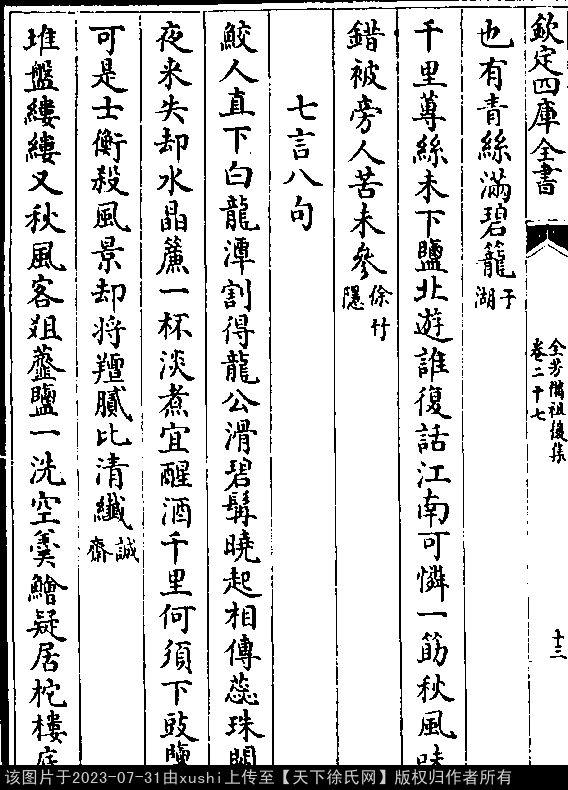 欽定四庫全書
全芳備祖後集
卷二十七
十三
也有青絲滿碧籠于湖
千里蓴絲未下鹽北遊誰復話江南可憐一筯秋風味
錯被旁人苦未參徐竹隱
七言八句
鮫人直下白龍潭割得龍公滑碧髯曉起相傳蕊珠闕
夜來失却水晶簾一杯淡煮宜醒酒千里何須下豉鹽
可是士衡殺風景却將羶膩比清纖誠齋
堆盤縷縷又秋風客俎虀鹽一洗空羹鱠疑居柁樓底
该图片于2023-07-31由xushi上传至【天下徐氏网】版权归作者所有